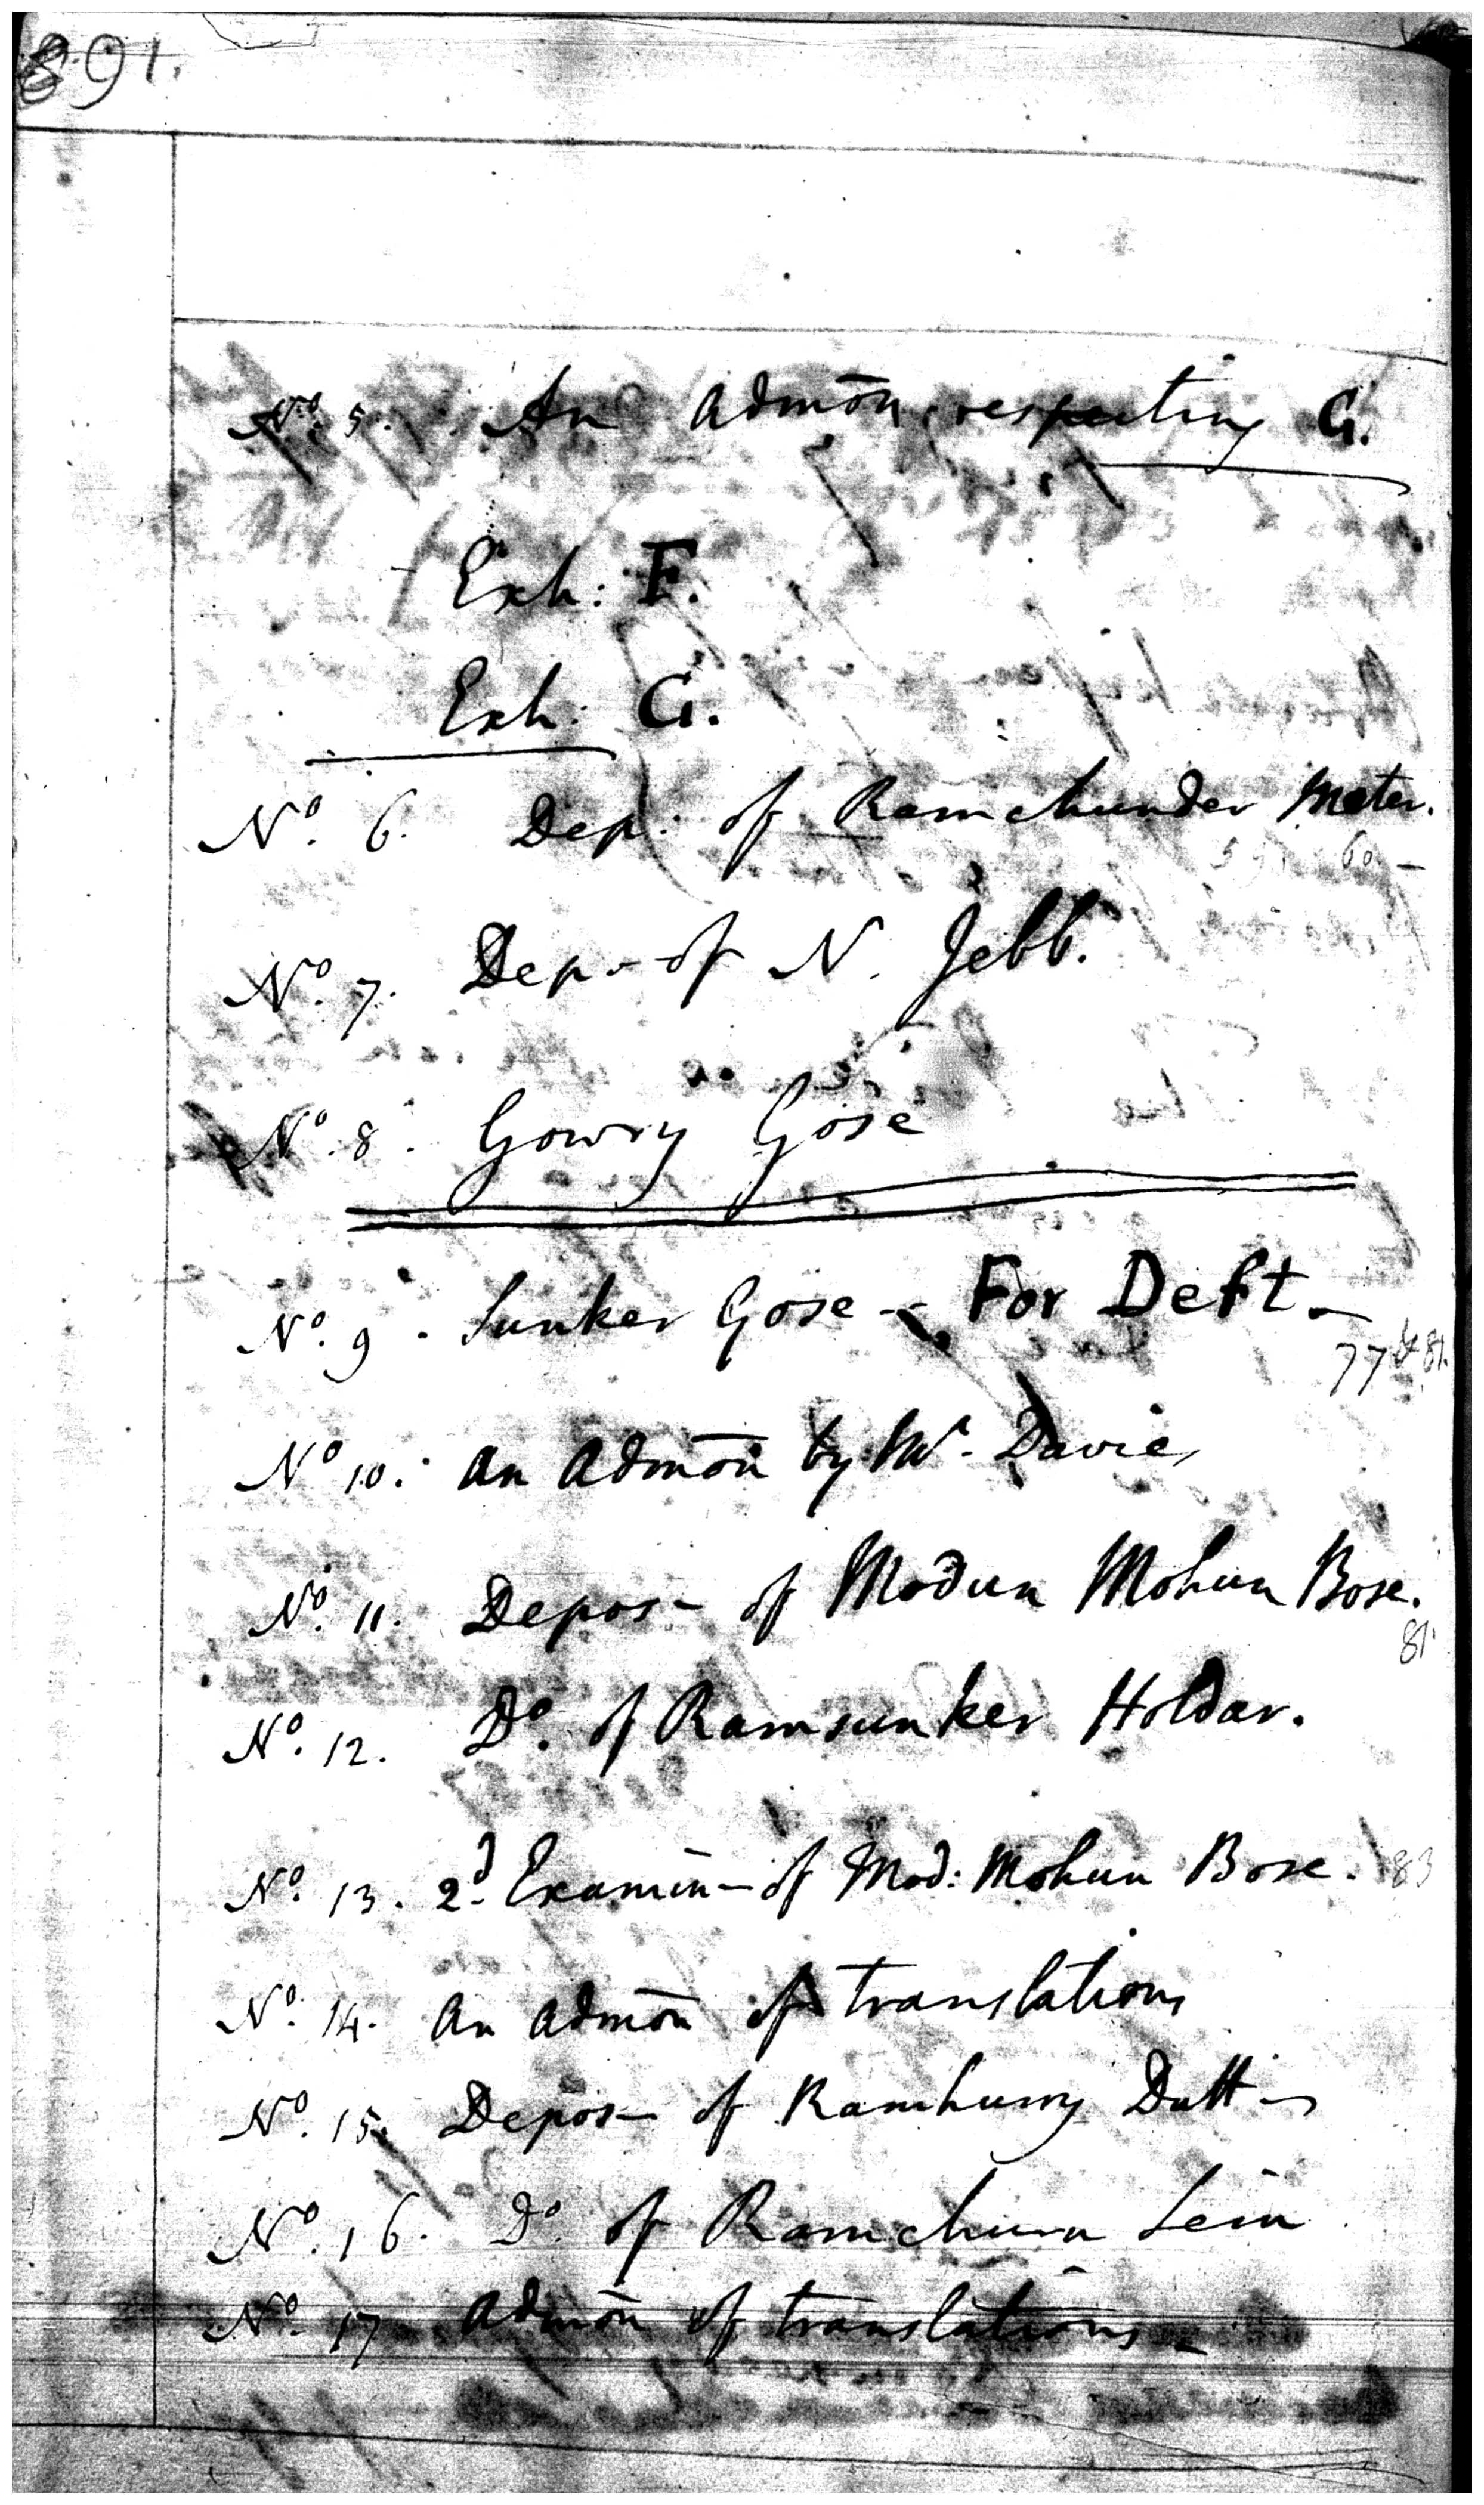 891.
No. 5. An Admōn respecting G.
Exh: F.
Exh: G.
No. 6. Dep: of Ramchunder Meter.
60
No. 7. Dep - of N. Jebb.
No. 8. Gowry Gose
No. 9. Sunker Gose -- For Deft -
77 & 81.
No 10. An Admōn by Mr. Davies
No. 11. Depos - of Modun Mohun Bose.
81.
No. 12. Do. of Ramsunker Holdar.
No. 13. 2d Examin - of Mod: Mohun Bose. 83
No. 14. An Admōn of translations
No. 15. Depos - of Ramhurry Dutt -
No. 16. Do. of Ramchurn Sein
No. 17 Admōn of translations -